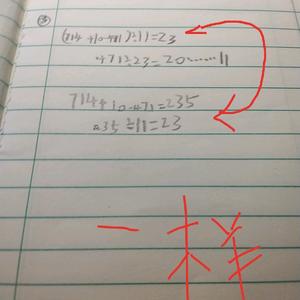 ③
(714+10-471)÷11=23
471÷23=20……11
714+10-471=235
235÷11=23
一样